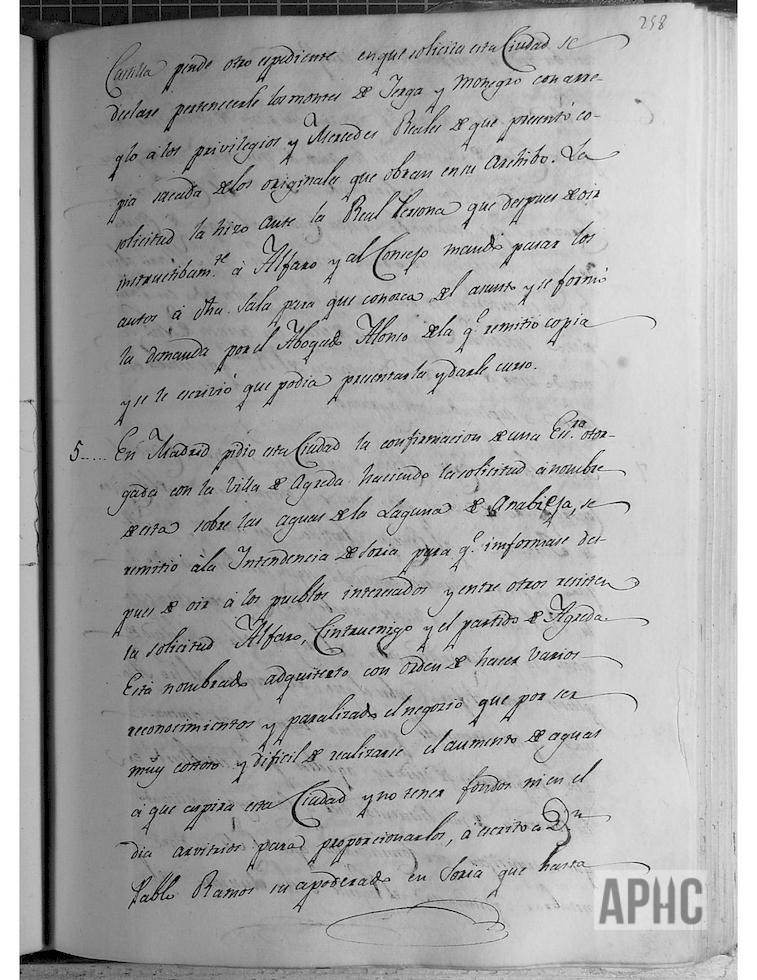 258
Castilla pende otro expediente en que solicita esta Ciudad se
declare pertenecerle los montes de Yerga y Monegro con arre-
glo a los privilegios y Mercedes Reales de que presentó co-
pia sacada de los originales que obran en su Archibo. La
solicitud la hizo ante la Real Persona que despues de oir
instructibam.te á Alfaro y al Consejo mandó pasar los
autos á dha. Sala para que conozca del asunto y se formó
la demanda por el Abogado Alonso de la q.e remitio copia
y se le escrivió que podia presentarla y darle curso.
5..... En Madrid pidio esta Ciudad la confirmacion de una Es.ra otor-
gada con la Villa de Agreda haciendo la solicitud á nombre
de esta sobre las aguas de la Laguna de Anabieja, se
remitió á la Intendencia de Soria para q.e imformase des-
pues de oir á los pueblos interesados y entre otros resisten
la solicitud Alfaro, Cintruenigo y el partido de Agreda.
Está nombrado adquiterto con orden de hacer varios
reconocimientos y paralizado el negozio que por ser
muy costoso y dificil de realizarse el aumento de aguas
á que aspira esta Ciudad y no tener fondos ni en el
dia arvitrios para proporcionarlos, á escrito a D.n
Pablo Ramos su apoderado en Soria que hasta
APHC